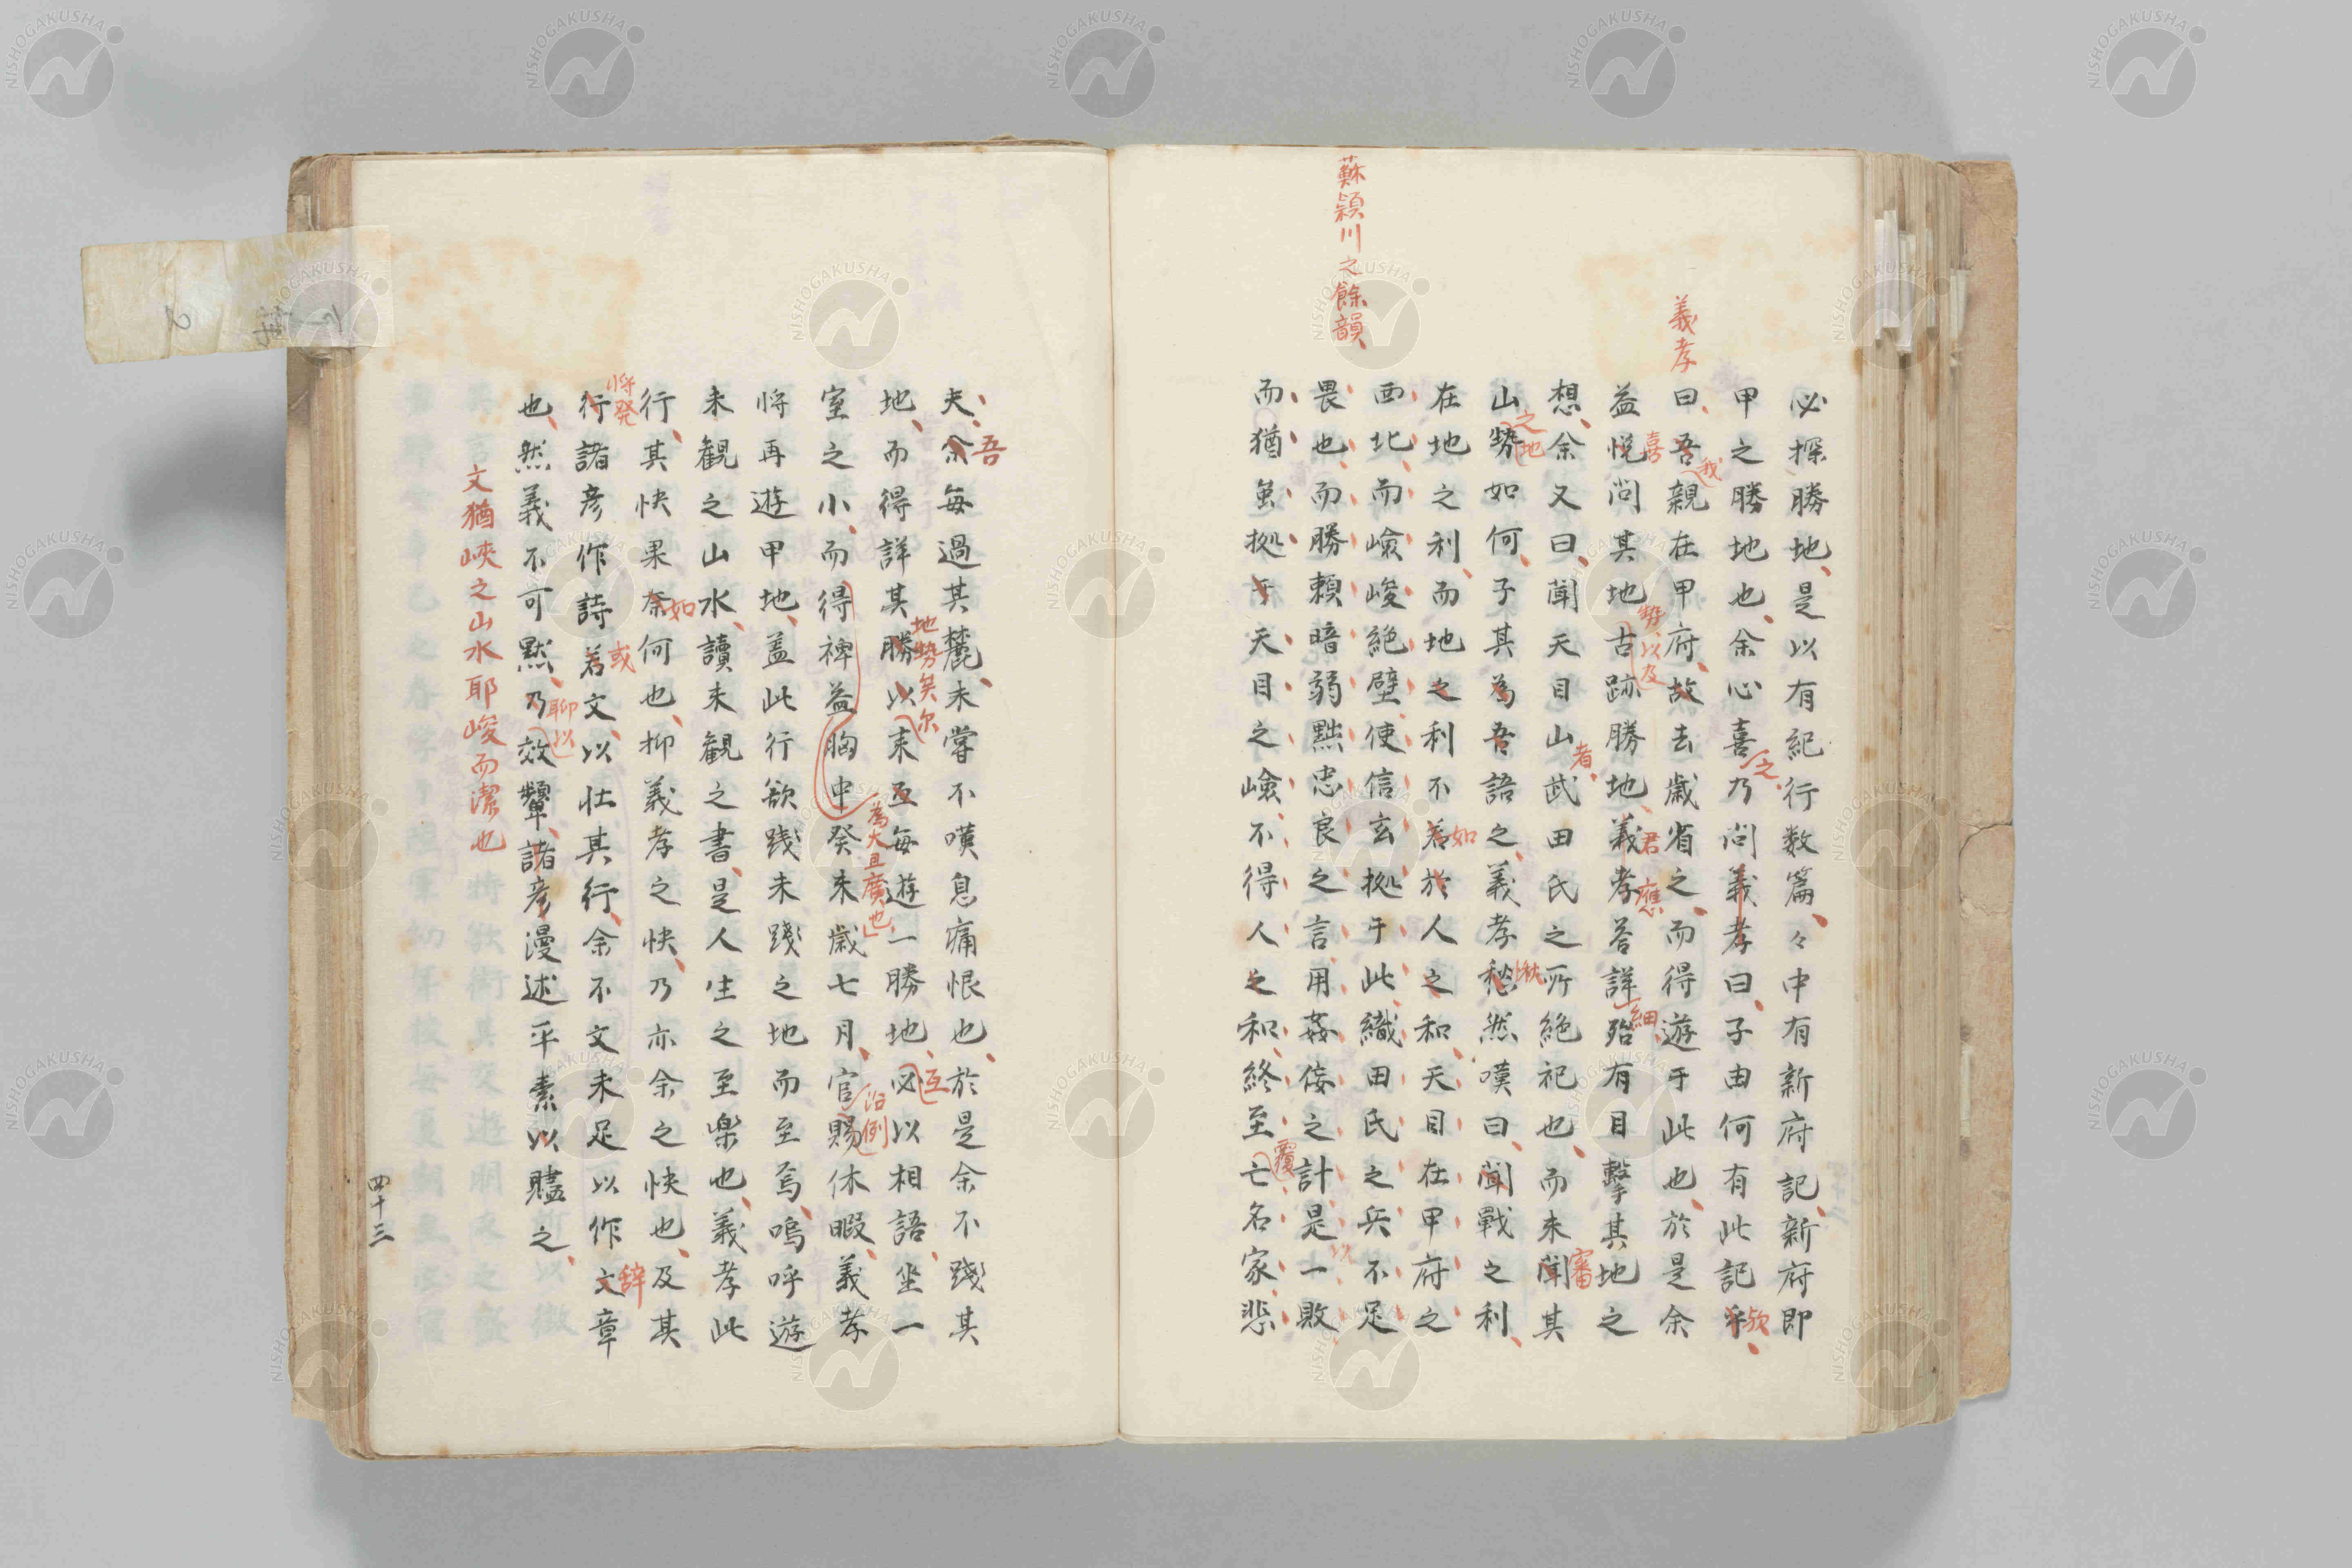 必探勝地、是以有紀行数篇、々中有新府記、新府即
甲之勝地也、余心喜之、乃問義孝曰、子由何有此記乎歟、
義孝
曰、吾我親在甲府、故去歳省之、而得遊于此也、於是余
益悦喜問其地勢以及古跡勝地、義孝君答應詳細殆有目擊其地之
想、余又曰、聞天目山者、武田氏之所絶祀也、而未聞審其
山勢之地如何、子其為吾語之、義孝愁愀然嘆曰、聞戰之利
在地之利、而地之利不若如於人之和、天目在甲府之
蘇穎川之餘韻、
西北、而嶮峻絶壁、使信玄拠于此、織田氏之兵不足
畏也、而勝頼暗弱、黜忠良之言、用姦侫之計、是以一敗
而猶虽拠于天目之嶮、不得人之和、終至覆亡、名家悲
夫、余吾每過其麓、未嘗不嘆息痛恨也、於是余不踐其
地、而得詳其勝地勢矣、尔以来互每遊一勝地、必互以相語、坐一
室之小、而得裨益胸中為大且廣也、癸未歳七月、官沿例賜休暇、義孝
将再遊甲地、盖此行欲踐未踐之地而至焉、嗚呼遊
未観之山水、讀未観之書、是人生之至楽也、義孝此
行、其快果奈如何也、抑義孝之快、乃亦余之快也、及其
将発
行諸彦作詩若或文、以壮其行、余不文未足以作文辞章
也、然義不可黙、乃聊以效顰諸彦、漫述平素以贐之、
文猶峽之山水耶峻而潔也
四十三
NISHOGAKUSHA